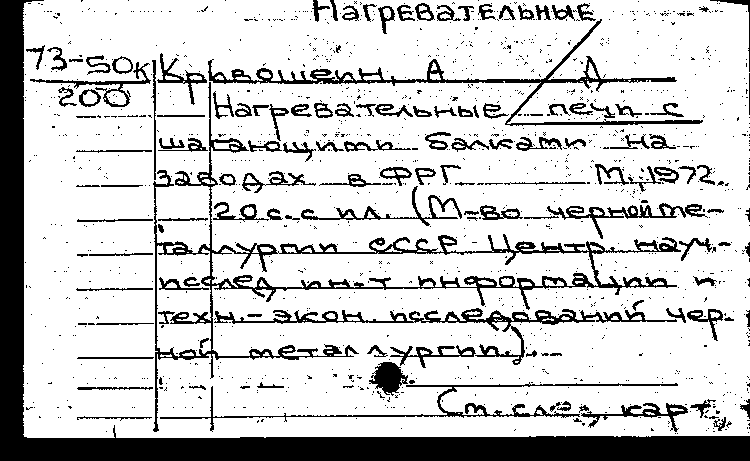 Нагревательные
73-50К Кривошеин, А Д
200 Нагревательные печи с
шагающими балками на
заводах в ФРГ М., 1972.
20 с. с ил. (М-во черной ме-
таллургии СССР Центр. науч.-
исслед. ин-т информации и
техн.-экон. исследований чер-
ной металлургии.).
См. след. карт.